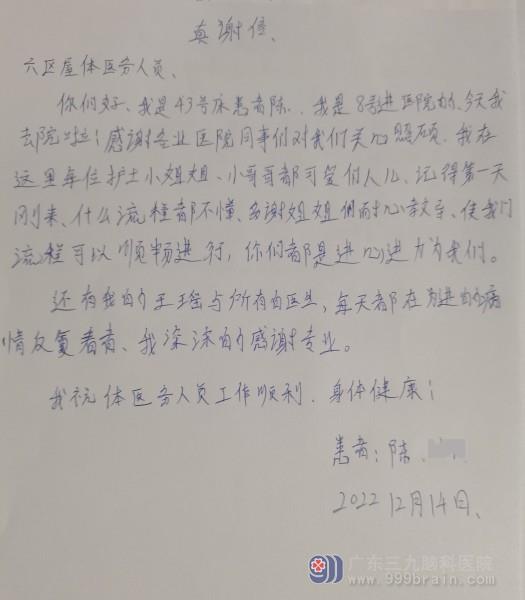 真谢信、
六区屋体医务人员、
你们好、我是43号床患者陈、我是8号进医院的、今天我
去院啦!感谢各业医院同事们对我们关心照顾、我在
这里每位护士小姐姐、小哥哥都可爱们人儿、记得第一天
刚来、什么流程都不懂、多谢姐姐们耐心教导、使我们
流程可以顺畅进行,你们都是进心进力为我们。
还有我的王瑶与所有的医生,每天都在为进的病
情反复看着、我深深的感谢专业。
我祝体医务人员工作顺利、身体健康!
患者:陈
2022 12月14日、
广东三九脑科医院
www.999brain.com